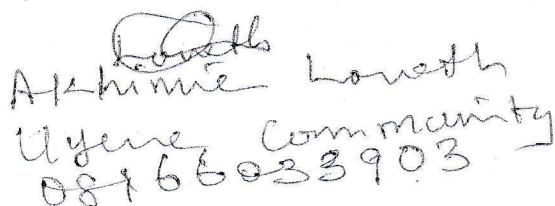 Loveth
Akhimie Loveth
Uyene Community
08166033903